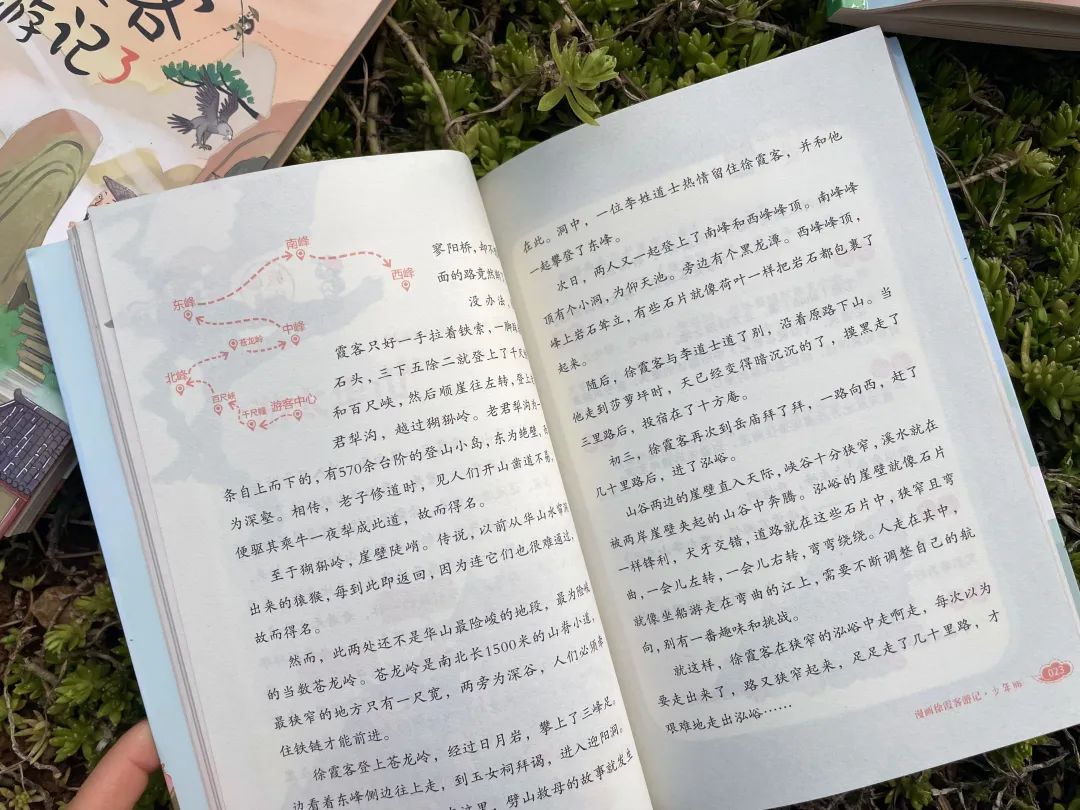 游记3
南峰
西峰
东峰
中峰
苍龙岭
北峰
百尺峡
千尺幢
游客中心
寥阳桥,却不
面的路竟然
没办法,
霞客只好一手拉着铁索,一脚
石头,三下五除二就登上了千尺
和百尺峡,然后顺崖往左转,登上
君犁沟,越过猢狲岭。老君犁沟为一
条自上而下的,有570余台阶的登山小岛,东为绝壁,
为深壑。相传,老子修道时,见人们开山凿道不易,
便驱其乘牛一夜犁成此道,故而得名。
至于猢狲岭,崖壁陡峭。传说,以前从华山水帘洞
出来的猿猴,每到此即返回,因为连它们也很难通过,
故而得名。
然而,此两处还不是华山最险峻的地段,最为险峻
的当数苍龙岭。苍龙岭是南北长1500米的山脊小道,
最狭窄的地方只有一尺宽,两旁为深谷,人们必须拿
住铁链才能前进。
徐霞客登上苍龙岭,经过日月岩,攀上了三峰足,
边看着东峰侧边往上走,到玉女祠拜谒,进入迎阳洞。
这里,劈山救母的故事就发生
在此。洞中,一位李姓道士热情留住徐霞客,并和他
一起攀登了东峰。
次日,两人又一起登上了南峰和西峰峰顶。南峰峰
顶有个小洞,为仰天池。旁边有个黑龙潭。西峰峰顶,
峰上岩石耸立,有些石片就像荷叶一样把岩石都包裹了
起来。
随后,徐霞客与李道士道了别,沿着原路下山。当
他走到莎萝坪时,天已经变得暗沉沉的了,摸黑走了
三里路后,投宿在了十方庵。
初三,徐霞客再次到岳庙拜了拜,一路向西,赶了
几十里路后,进了泓峪。
山谷两边的崖壁直入天际,峡谷十分狭窄,溪水就在
被两岸崖壁夹起的山谷中奔腾。泓峪的崖壁就像石片
一样锋利,犬牙交错,道路就在这些石片中,狭窄且弯
曲,一会儿左转,一会儿右转,弯弯绕绕。人走在其中,
就像坐船游走在弯曲的江上,需要不断调整自己的航
向,别有一番趣味和挑战。
就这样,徐霞客在狭窄的泓峪中走啊走,每次以为
要走出来了,路又狭窄起来,足足走了几十里路,才
艰难地走出泓峪……
漫画徐霞客游记·少年师
023